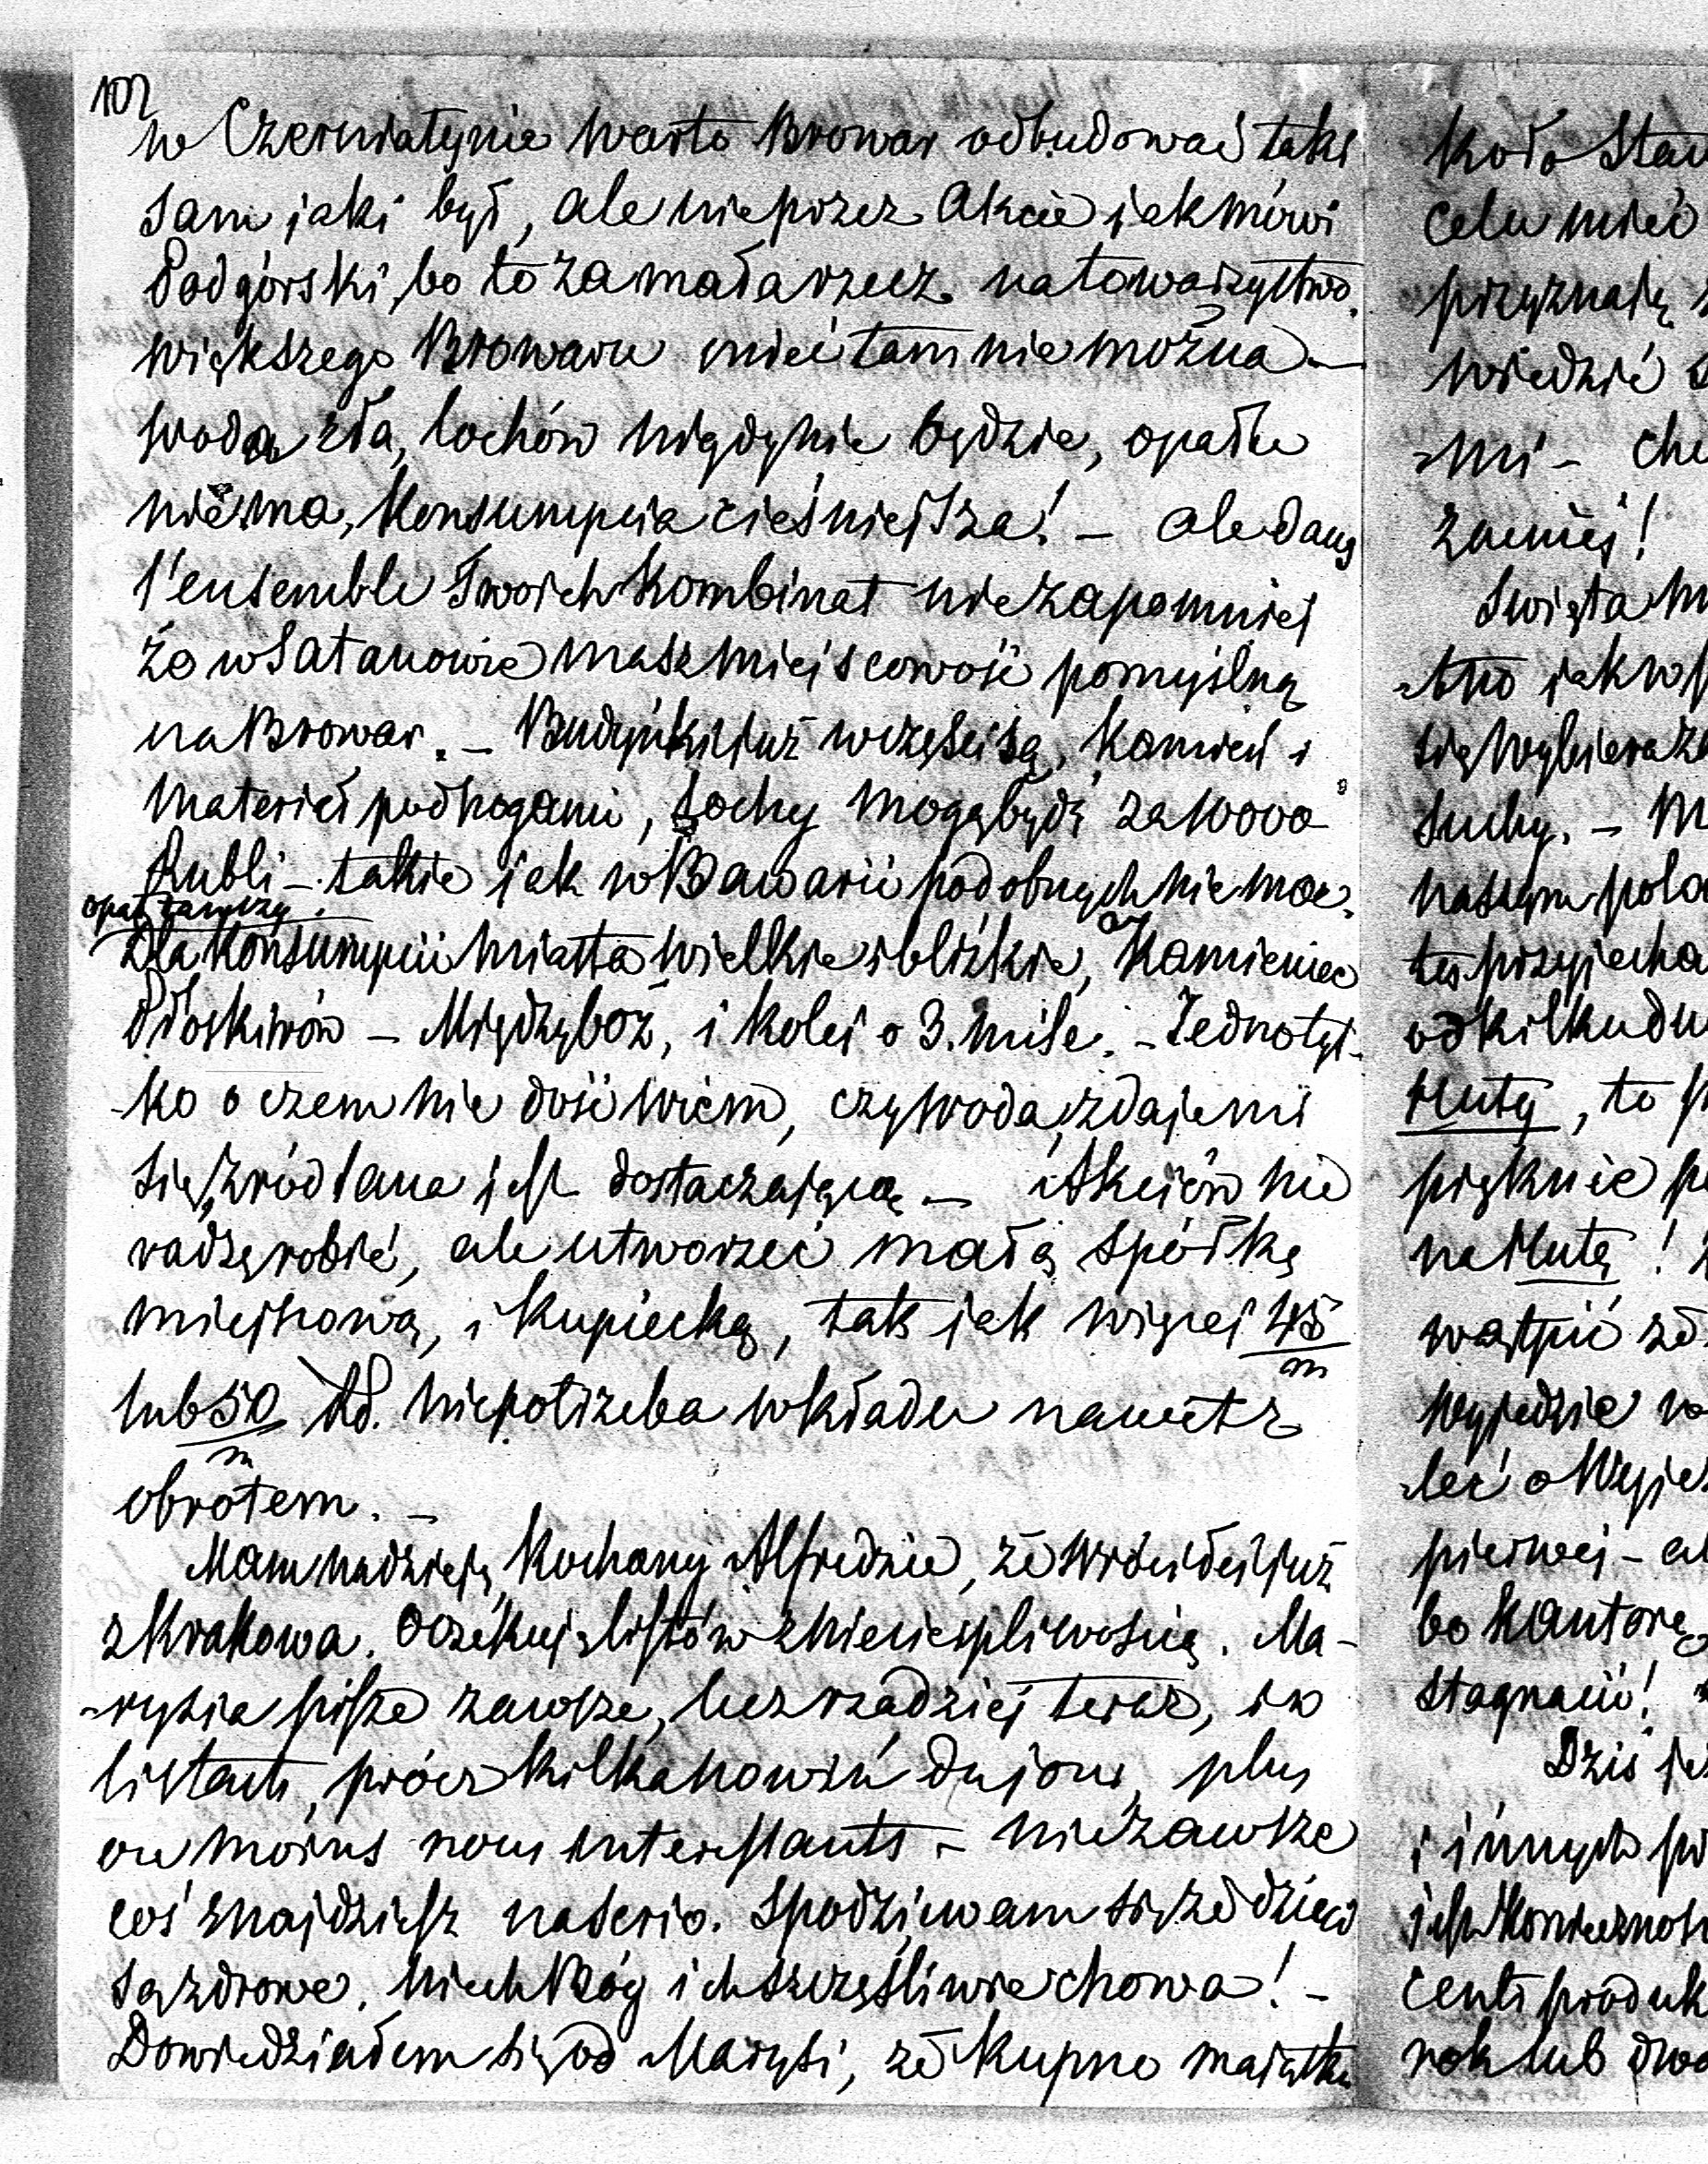 102
w Czerniatynie warto Browar odbudować taki
sam jaki był, ale nie przez Akcie jak mówi
Podgórski, bo to za mała rzecz na towarzystwo.
większego Browaru mieć tam nie można —
woda zła, lochów nigdy nie będzie, opału
niema, Konsumpcia cieśniejsza! — ale dans
l'ensemble Twoich Kombinat nie zapomniej
że w Satanowie masz miejscowość pomyślną
na Browar. — Budynki już w części są, Kamień i
materiał pod nogami, Lochy mogą być za 10000
Rubli — takie jak w Bawarii podobnych nie ma.
opał tańszy.
Dla Konsumpcii miasta wielkie i blizkie, a Kamieniec
Płoskirów — Międzyboż, i kolej o 3. mile. — Jedno tyl-
-ko o czem nie dość wiem, czy woda, zdaje mi
się, źródlana jest dostaczającą — Akciów nie
radzę robić, ale utworzeć małą spółkę
miejscową, i Kupiecką, tak jak więcej 45/m
lub 50/m Rd. niepotrzeba wkładu nawet z
obrotem. —
Mam nadzieję, Kochany Alfredzie, że wróciłeś już
z Krakowa. Oczekuję listów z niecierpliwością. Ma-
-rysia pisze zawsze, lecz rzadziej teraz, i w
listach, prócz kilka nowin du jour, plus
ou moins nous interessants — nie zawsze
coś znajdziesz na serio. Spodziewam się że dzieci
są zdrowe. niech Bóg ich szczęśliwie chowa! —
Dowiedziałem się od Marysi, że kupno majątku
koło
celu mieć
przyznaję
wiedzić
-mi —
Święta
jak w
się wybiera
suchy. —
naszym
też przyjecha
od kilku
Hutę, to
pięknie
na Hutę!
wątpić
wyjedzie
pierwej —
bo Kantorę
stagnacii!
Dziś
i innych
jest
centi produk
rok lub